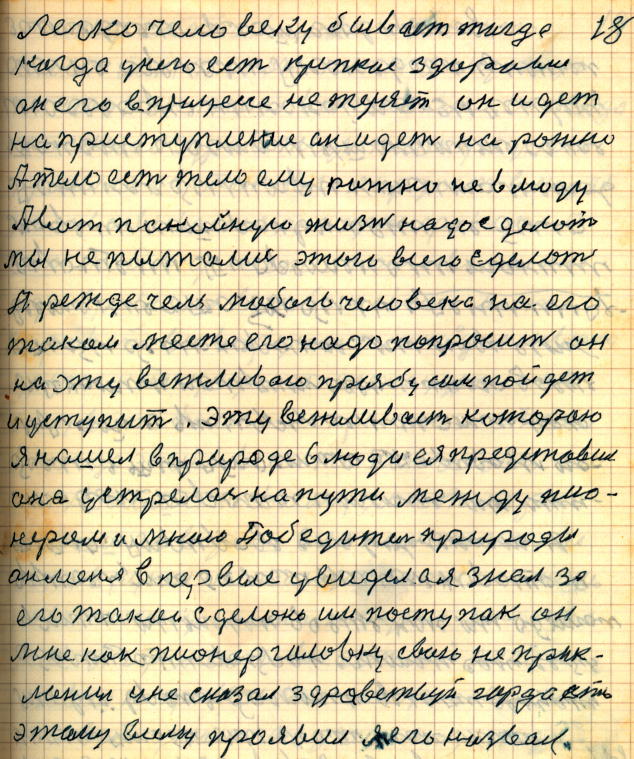 Легко человеку бывает тогда 18
когда унего ест крипкое здоровие
он его вприцепе не теряет он идет
на приступление он идет на рожно
А тело ест тело ему рожно не в моду
А вот покойную жизн надо сделот
мы не пытались этого всего сделот
Прежде чем любого человека на его
таком месте его надо попросит он
на эту вежливаю прозбу сам пойдет
и уступит. Эту вежливаст котораю
я нашел в природе в люди ея представил
она устрелас на пути между пио-
нером и мною Победител природы
он меня в первые увидел а я знал за
его такой сделоно им поступак он
мне как пионер головку свою не прик-
лонил и не сказал здраветвуй гордасть
этому всему проявил я его назвал.